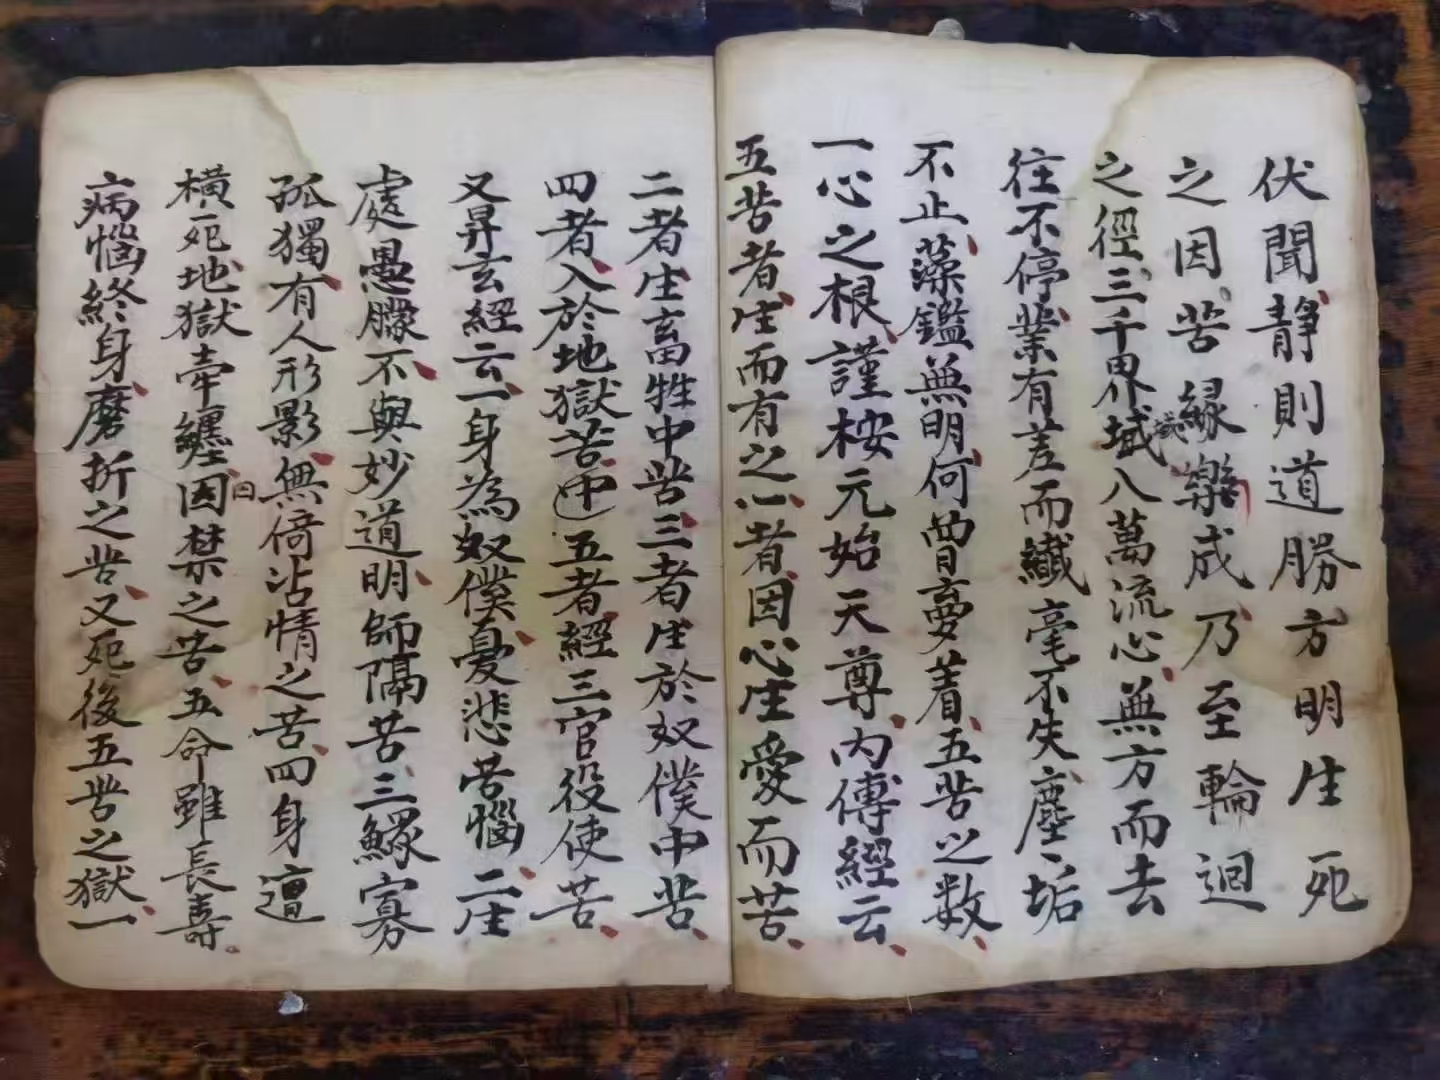 伏聞靜則道勝方明生死
之因苦緣樂成乃至輪迴
之徑三千界域八萬流心無方而去
往不停業有差而纖毫不失塵垢
不止藻鑑無明何曾夢着五苦之数
一心之根謹桉元始天尊內傳經云
五苦者生而有之一者因心生愛而苦
二者生畜牲中苦三者生於奴僕中苦
四者入於地獄苦中五者經三官役使苦
又昇玄經云一身為奴僕憂悲苦惱二生
處愚朦不與妙道明師隔苦三鰥寡
孤獨有人形影無倚沾情之苦四身遭
橫死地獄牽纏因囚禁之苦五命雖長壽
病惱終身磨折之苦又死後五苦之獄一